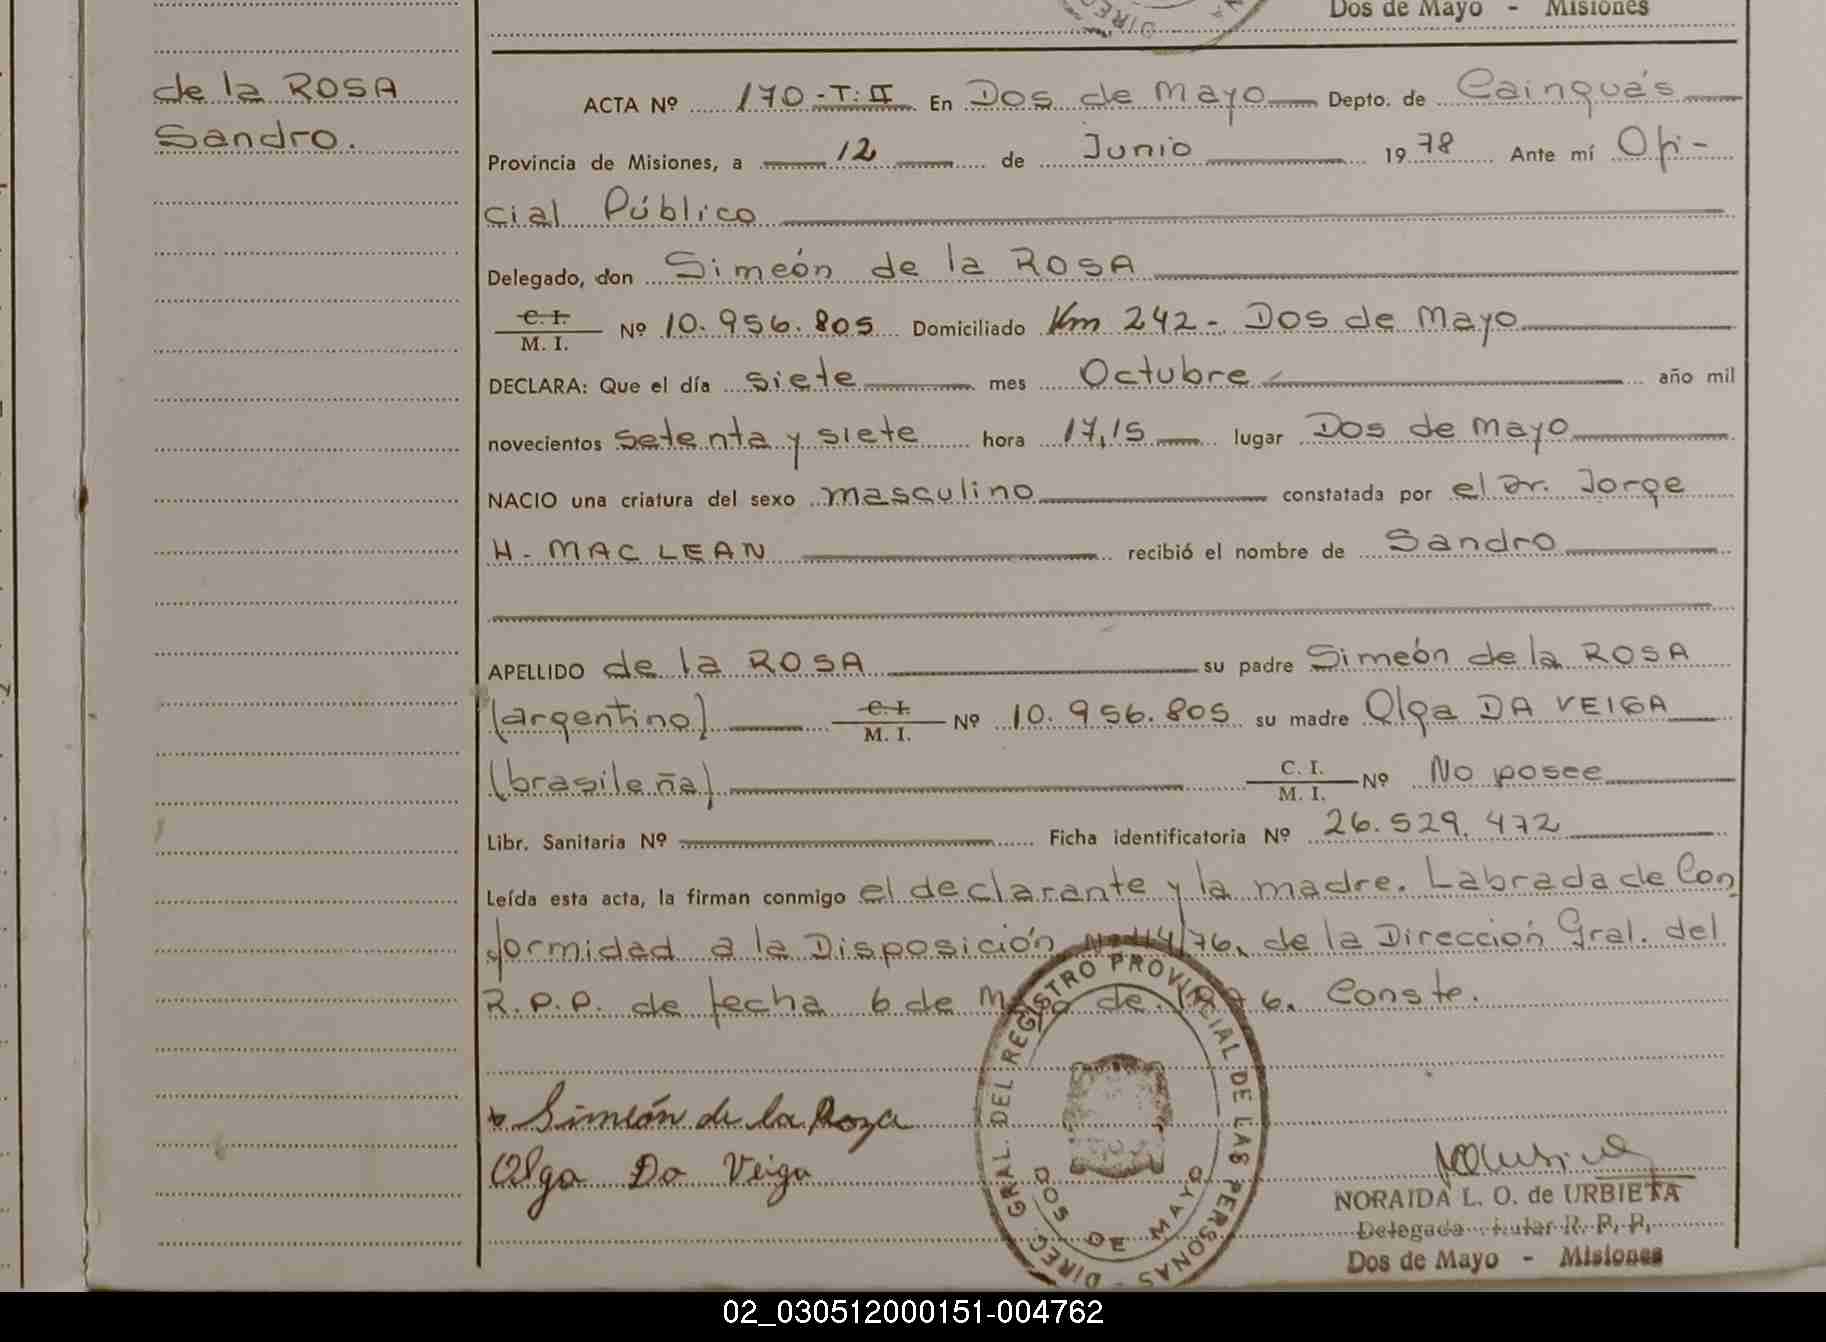 Dos de Mayo - Misiones
de la ROSA
Sandro.
ACTA Nº 170-T: II En Dos de Mayo Depto. de Cainguás
Provincia de Misiones, a 12 de Junio 1978 Ante mí Ofi-
cial Público
Delegado, don Simeón de la ROSA
C. I.
M. I. Nº 10.956.805 Domiciliado Km 242- Dos de Mayo
DECLARA: Que el día siete mes Octubre año mil
novecientos setenta y siete hora 17,15 lugar Dos de Mayo
NACIO una criatura del sexo masculino constatada por el Dr. Jorge
H. MAC LEAN recibió el nombre de Sandro
APELLIDO de la ROSA su padre Simeón de la ROSA
(argentino) C. I. M. I. Nº 10.956.805 su madre Olga DA VEIGA
(brasileña) C. I. M. I. Nº No posee
Libr. Sanitaria Nº Ficha identificatoria Nº 26.529.472
Leída esta acta, la firman conmigo el declarante y la madre. Labrada de Con
formidad a la Disposición /76, de la Dirección Gral. del
R.P.P. de fecha 6 de de Conste.
Simeón de la Roza
Olga Da Veiga
DIREC. GRAL. DEL REGISTRO PROVINCIAL DE LAS PERSONAS -
DOS DE MAYO
NORAIDA L. O. de URBIETA
Delegada Titular R. P. P.
Dos de Mayo - Misiones
02_030512000151-004762